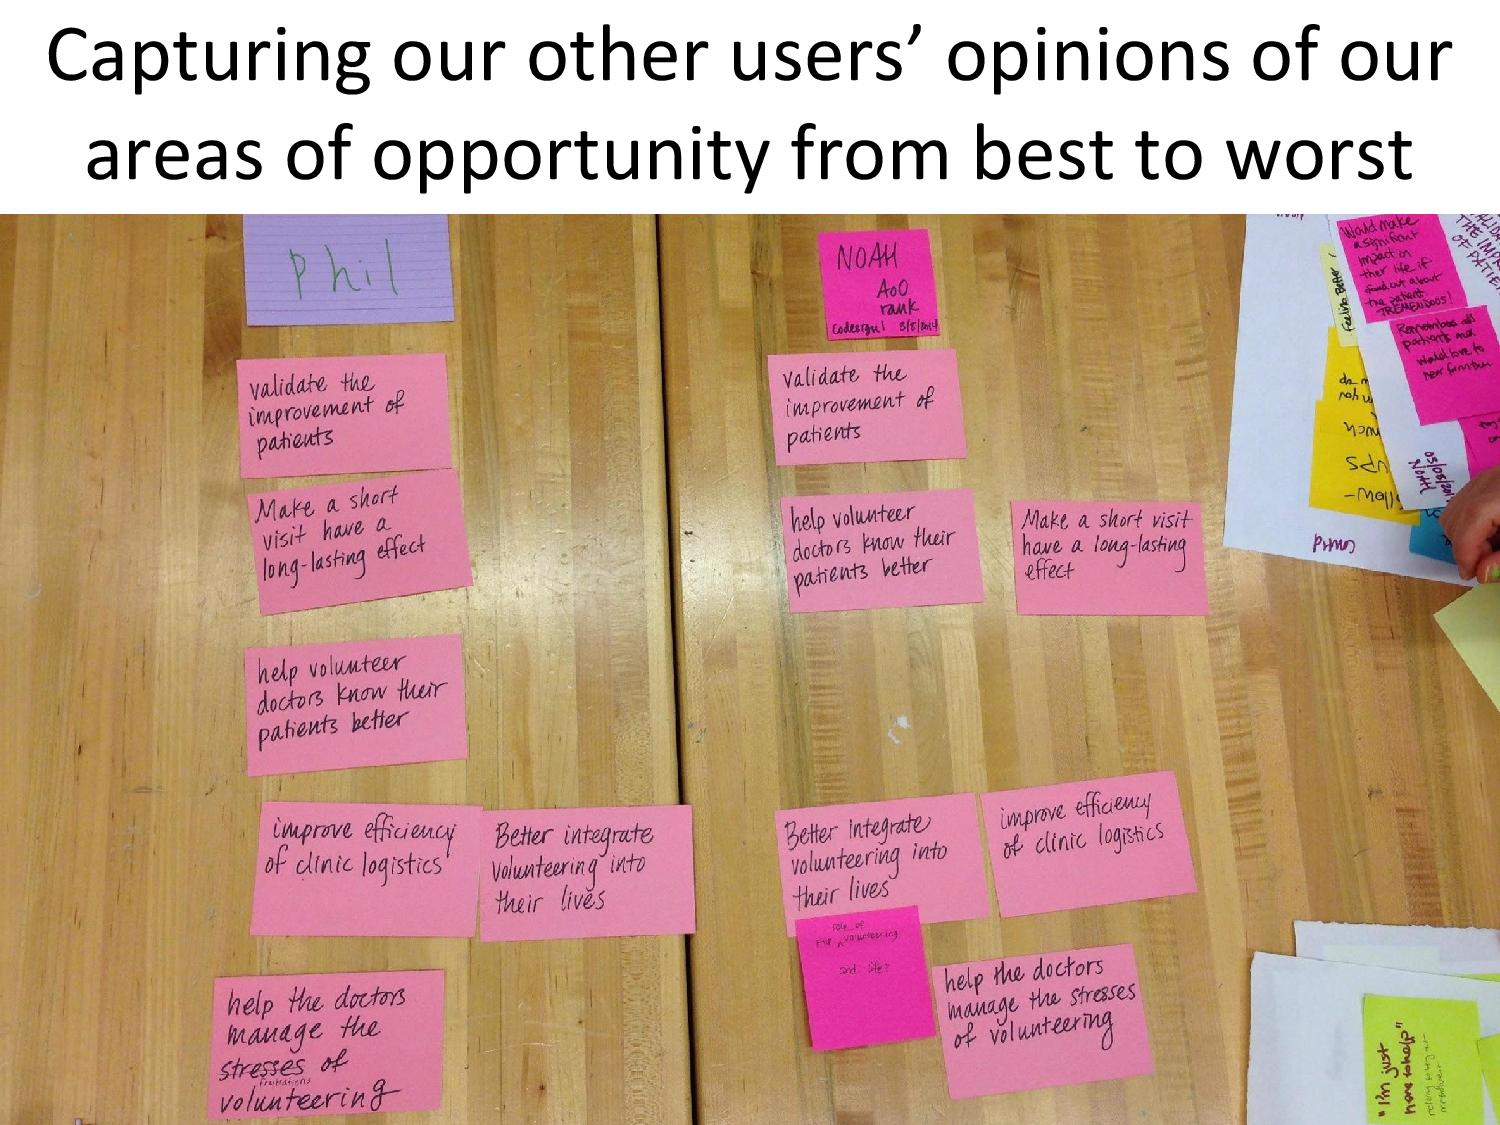 Capturing our other users’ opinions of our
areas of opportunity from best to worst
Phil
validate the
improvement of
patients
Make a short
visit have a
long-lasting effect
help volunteer
doctors know their
patients better
improve efficiency
of clinic logistics
Better integrate
volunteering into
their lives
help the doctors
manage the
stresses of
frustrations
volunteering
NOAH
AoO
rank
Codesign! 3/5/2014
validate the
improvement of
patients
help volunteer
doctors know their
patients better
Make a short visit
have a long-lasting
effect
Better integrate
volunteering into
their lives
improve efficiency
of clinic logistics
role of
volunteering
and life?
help the doctors
manage the stresses
of volunteering
Would make
a significant
impact in
their life if
found out about
the patient
TREMENDOUS!
Remembers all
patients and
would love to
Feeling Better
THE
OF
NOAH
"I'm just
here to help"